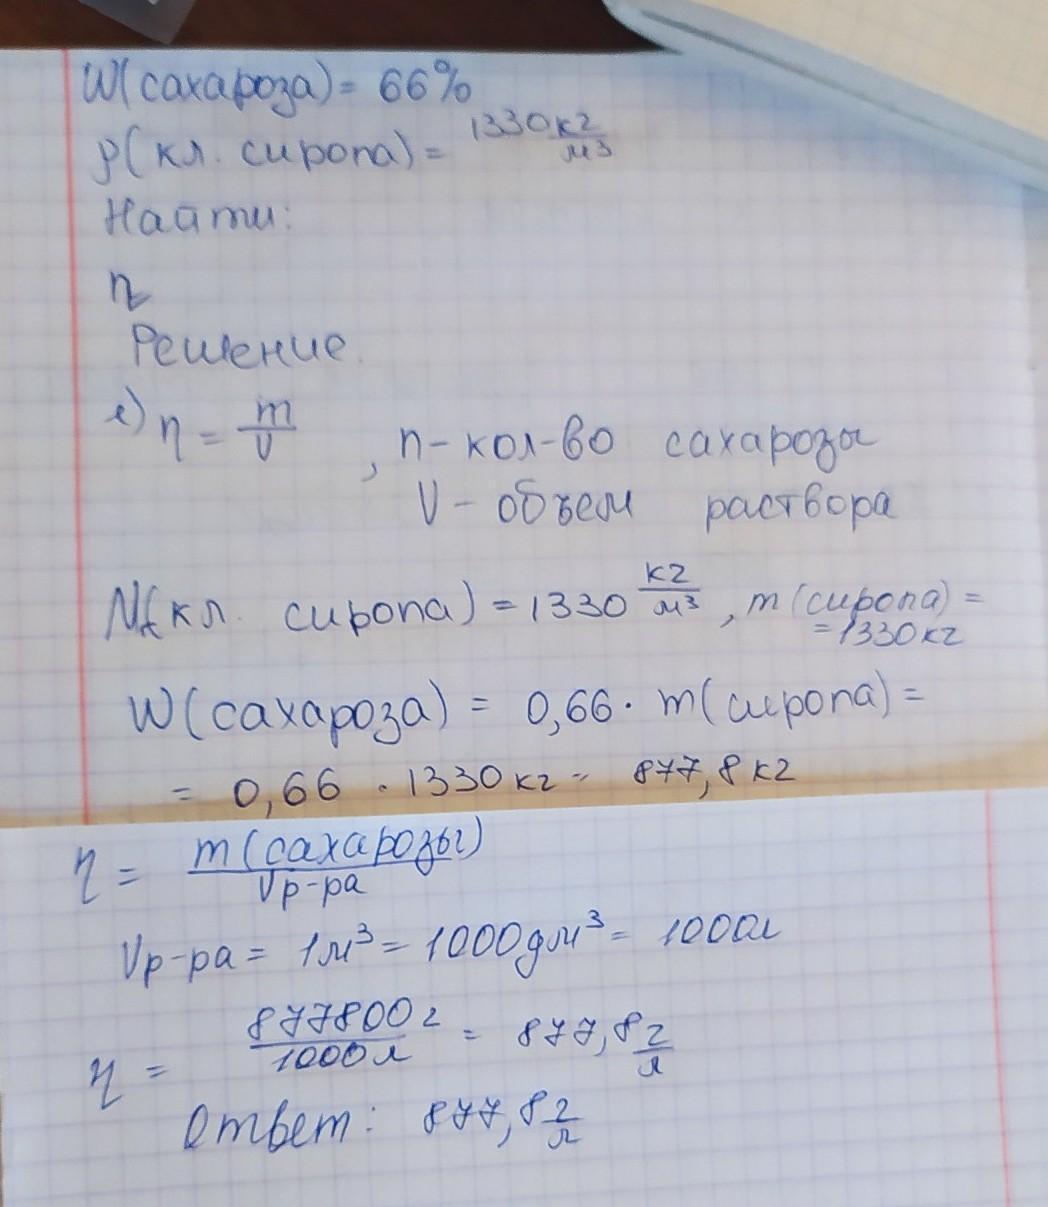 W(сахароза) = 66%
ρ(кл. сиропа) = 1330 кг/м³
Найти:
η
Решение.
1) η = m/V , η - кол-во сахарозы
V - объем раствора
(кл. сиропа) = 1330 кг/м³ , m (сиропа) =
= 1330 кг
W(сахароза) = 0,66 · m(сиропа) =
= 0,66 · 1330 кг = 877,8 кг
η = m(сахарозы)/Vр-ра
Vр-ра = 1м³ = 1000дм³ = 1000л
η = 877800 г/1000 л = 877,8 г/л
Ответ: 877,8 г/л